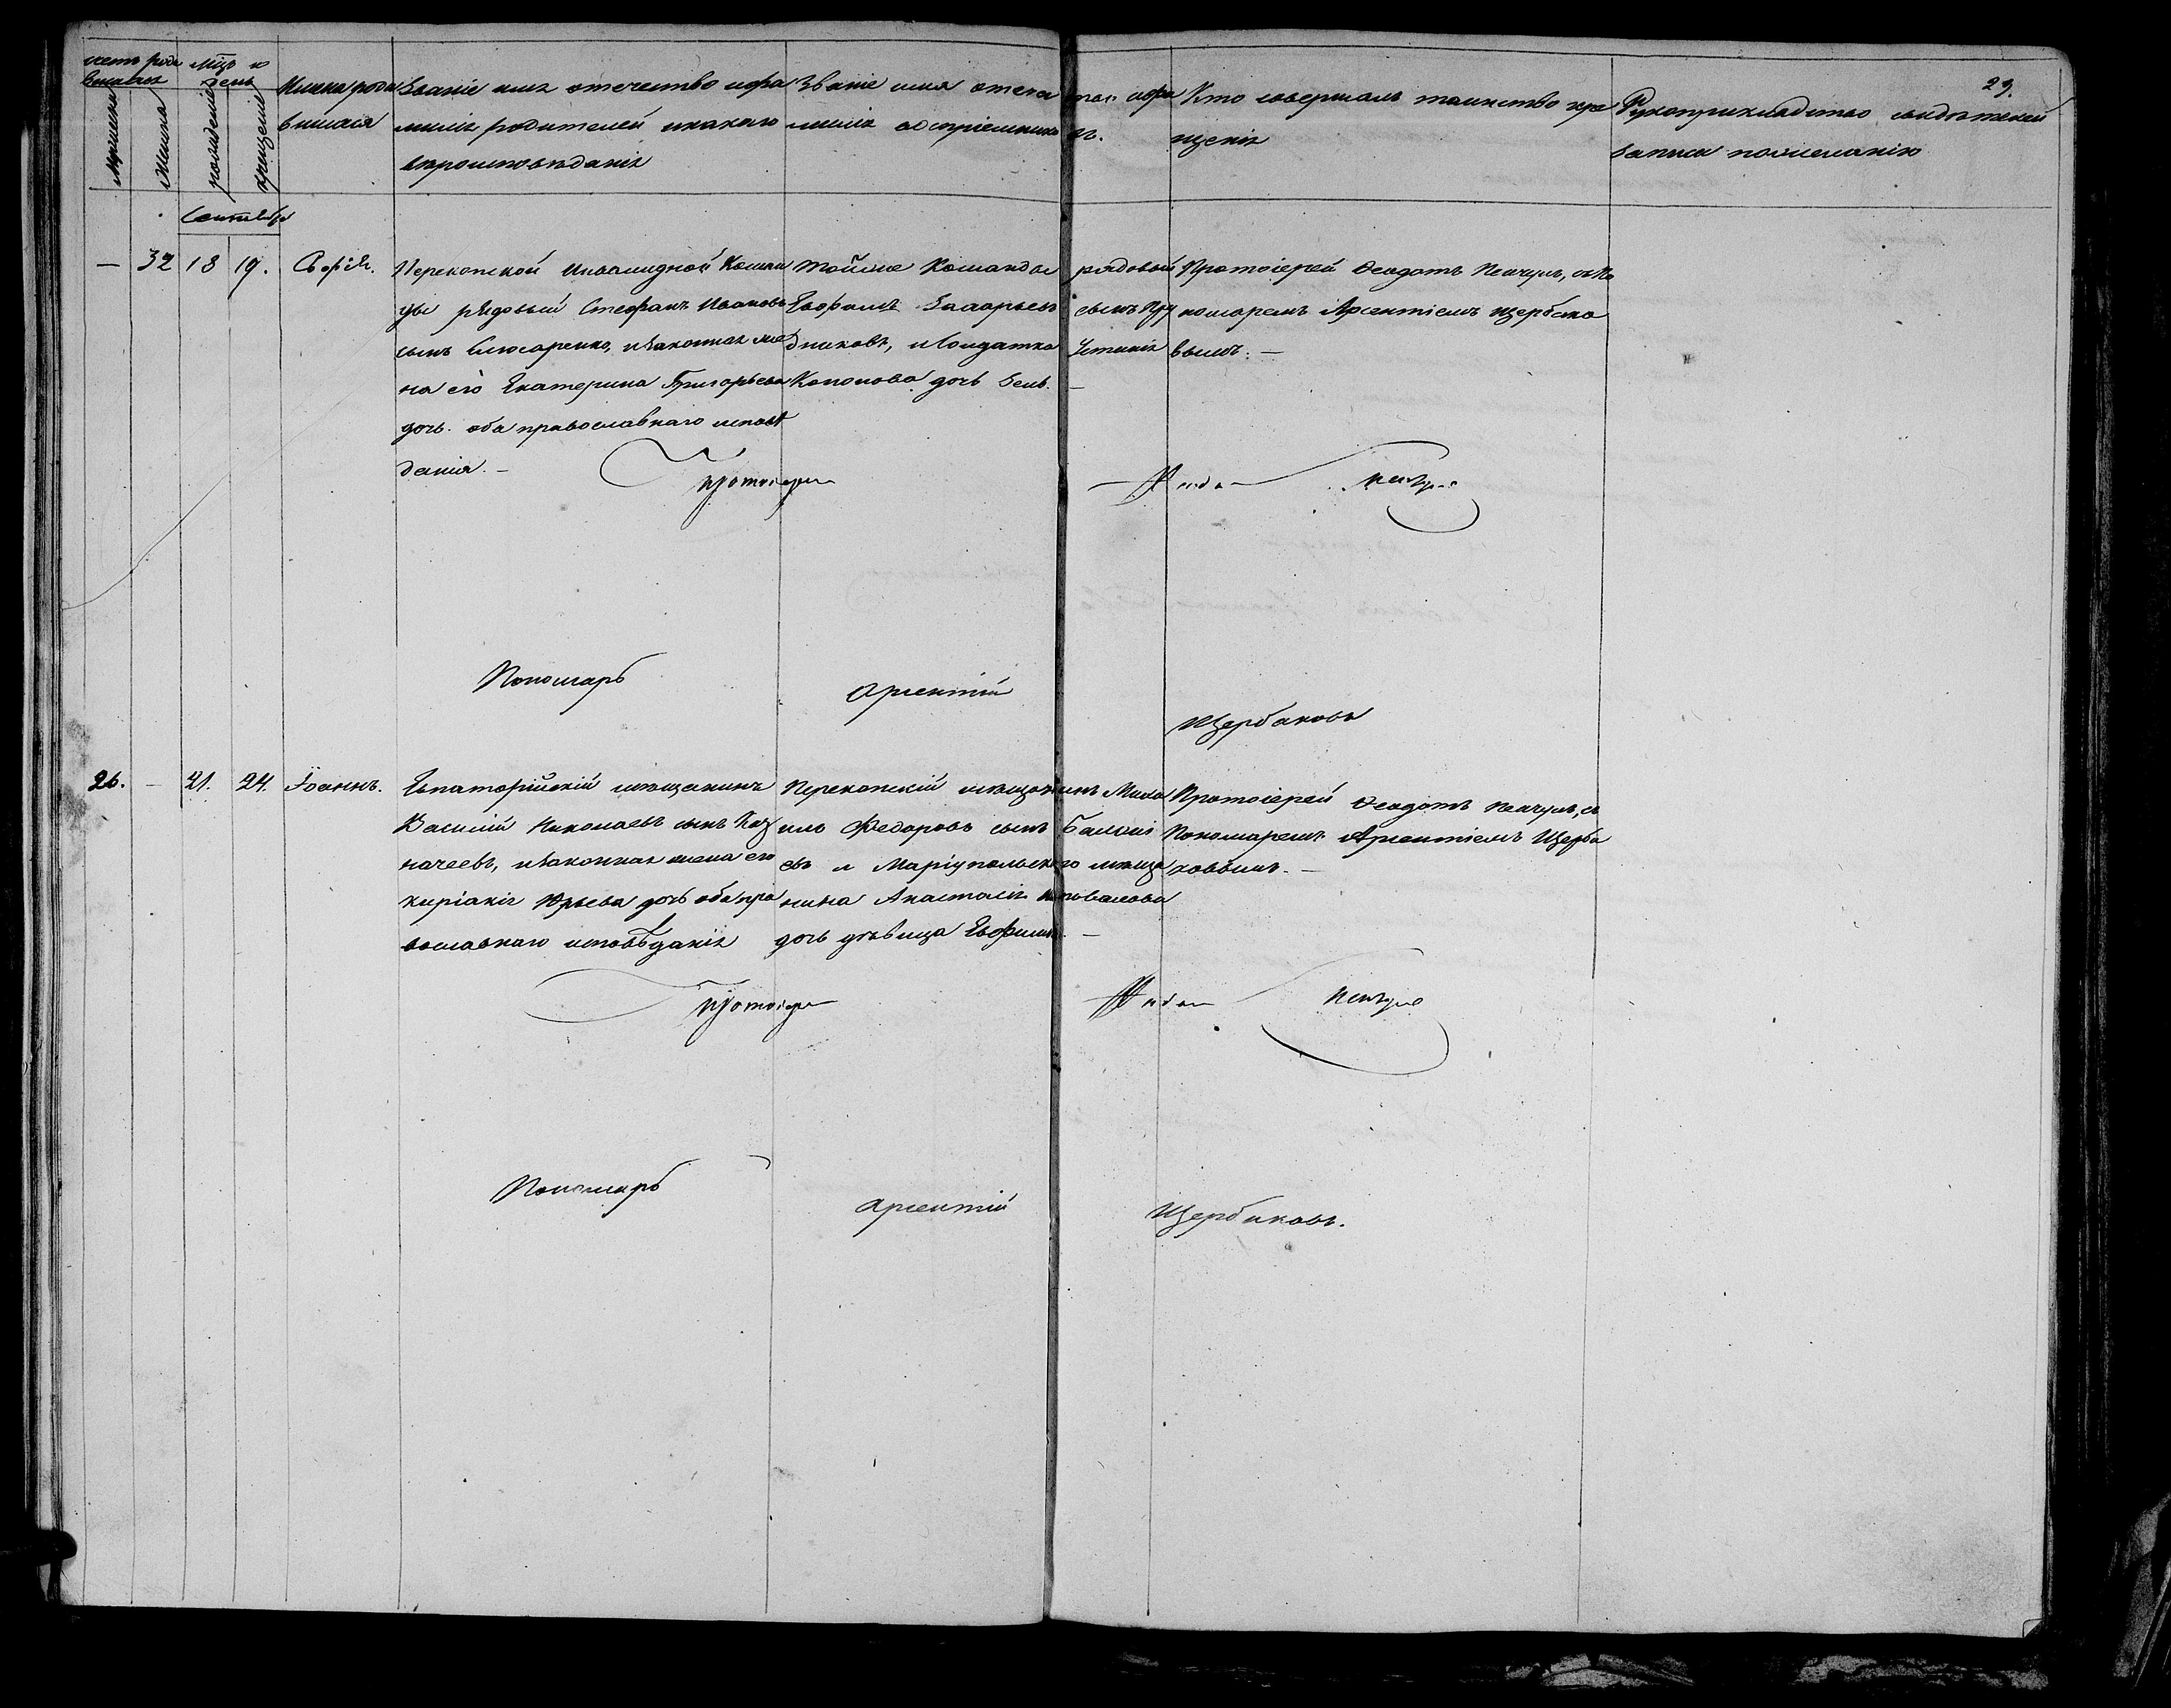 29.
Счетъ роди
вшихся
мужеска
женска
Мцъ и
день
рожденія
крещенія
Имена роди
вшихся
Званіе имя отечество ифа
милія родителей икакаго
вѣроисповѣданія
Званіе имя отече
ство ифа
милія воспріемнико
въ.
Кто совершалъ таинство кре
щенія
Рукоприкладство свидѣтелей
записи пожеланію
Сентябрь
— 32 18 19. Софія.
Перекопской Инвалидной Коман
ды рядовый Стефанъ Ивановъ
сынъ Слюсаренко, изаконная же
на его Екатерина Григорьева
дочь. оба православнаго исповѣ
данія. —
Тойже Команды рядовый
Евфимъ Захарьевъ сынъ Пру
дниковъ, иСолдатка Устинія
Кононова дочь Зень. —
Протоіерей Феодотъ Пенчулъ, съ По
номаремъ Арсентіемъ Щербако
вымъ. —
Протоіерей
Феодотъ
Пенчулъ
Пономарь
Арсентій
Щербаковъ
26. — 21. 24. Іоаннъ.
Евпаторійскій мѣщанинъ
Василій Николаевъ сынъ Каз
начеевъ, изаконная жена его
Киріакія Юрьева дочь оба пра
вославнаго исповѣданія
Перекопскій мѣщанинъ Миха
илъ Федоровъ сынъ
евъ и Маріупольскаго мѣща
нина Анастасія
дочь дѣвица Евфимія. —
Протоіерей Феодотъ Пенчулъ, съ
Пономаремъ Арсентіемъ Щерба
ковымъ. —
Протоіерей
Феодотъ
Пенчулъ
Пономарь
Арсентій
Щербаковъ.